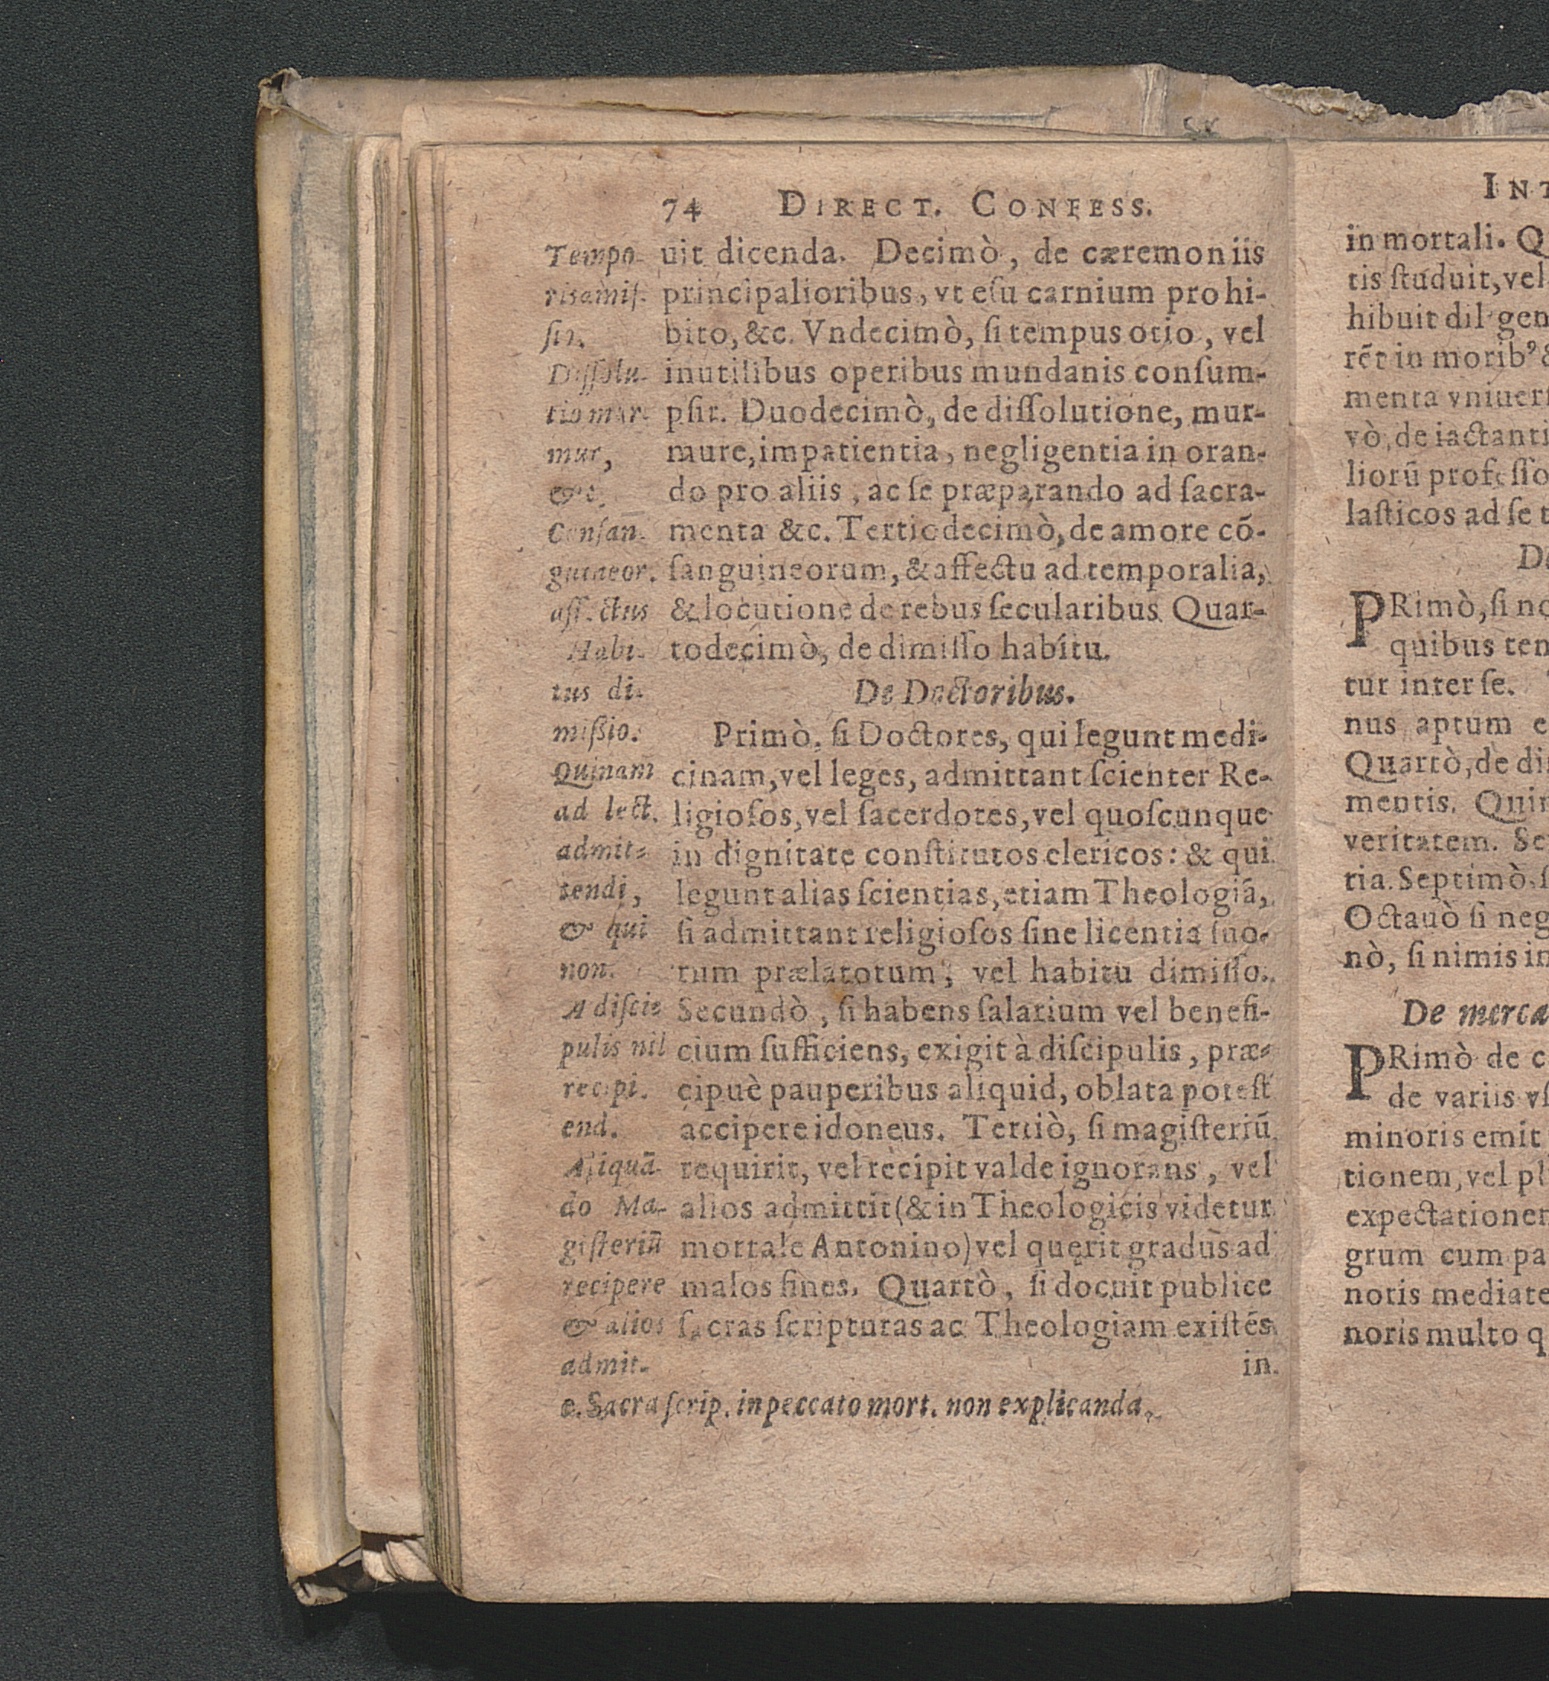 74 DIRECT. CONFESS.
uit dicenda. Decimò, de cæremoniis
principalioribus, vt esu carnium prohi-
bito, &c. Vndecimò, si tempus otio, vel
inutilibus operibus mundanis consum-
psit. Duodecimò, de dissolutione, mur-
mure, impatientia, negligentia in oran-
do pro aliis, ac se præparando ad sacra-
menta &c. Tertiodecimò, de amore cõ-
sanguineorum, & affectu ad temporalia,
& locutione de rebus secularibus Quar-
todecimò, de dimisso habitu.
De Doctoribus.
Primò, si Doctores, qui legunt medi-
cinam, vel leges, admittant scienter Re-
ligiosos, vel sacerdotes, vel quoscunque
in dignitate constitutos clericos: & qui
legunt alias scientias, etiam Theologiã,
si admittant religiosos sine licentia suo-
rum prælatorum, vel habitu dimisso.
Secundò, si habens salarium vel benefi-
cium sufficiens, exigit à discipulis, præ-
cipuè pauperibus aliquid, oblata potest
accipere idoneus. Tertiò, si magisteriũ
requirit, vel recipit valde ignorans, vel
alios admittit (& in Theologicis videtur
mortale Antonino) vel quęrit gradus ad
malos fines. Quartò, si docuit publice
sacras scripturas ac Theologiam existẽs
in
Tempo-
ris amis-
sio.
Dissolu-
tio mur-
mur,
&c.
Consan-
guineor.
affectus
Habi-
tus di-
missio.
Quinam
ad lect.
admit-
tendi,
& qui
non.
A disci-
pulis nil
recipi-
end.
Aliquã-
do Ma-
gisteriũ
recipere
& alios
admit-
e. Sacra scrip. in peccato mort. non explicanda.
INT
in mortali. Q
tis studuit, vel
hibuit diligen
rẽt in morib9 &
menta vniuers
vò, de iactanti
liorũ professio
lasticos ad se t
De
PRimò, si no
quibus tem
tur inter se.
nus aptum e
Quartò, de di
mentis. Quin
veritatem. Se
tia. Septimò, s
Octauò si neg
nò, si nimis in
De merca
PRimò de c
de variis vs
minoris emit
tionem, vel pl
expectationem
grum cum pa
noris mediate
noris multo q